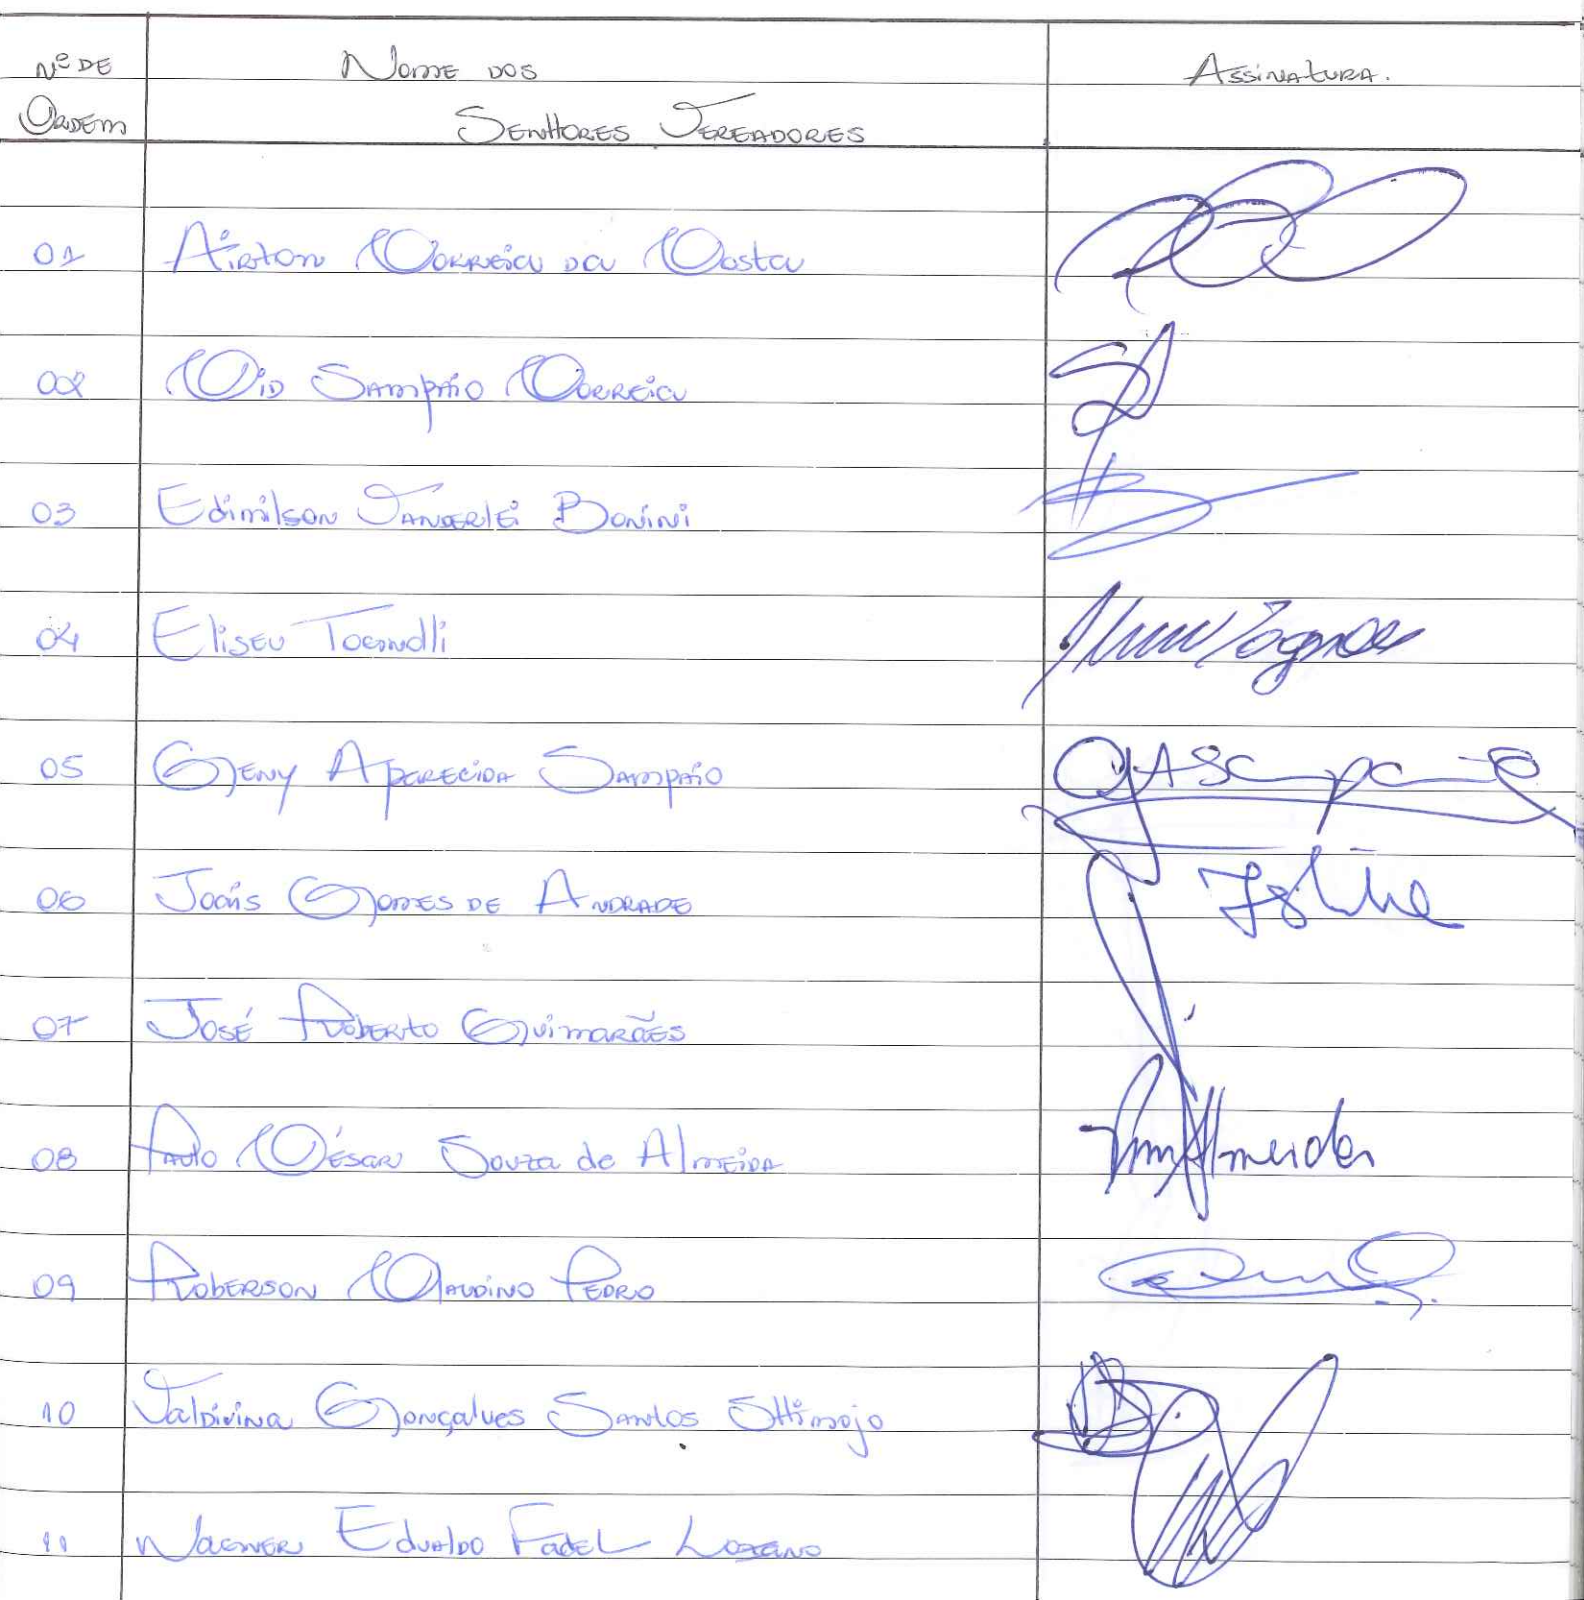 Nº DE Nome dos Assinatura.
Ordem Senhores Vereadores
01 Airton Correia da Costa
02 Cid Sampaio Correia
03 Edimilson Vanderlei Bonini
04 Eliseu
05 Geny Aparecida Sampaio GASampaio
06 Gomes de Andrade
07 José Roberto Guimarães
08 Paulo César Souza de Almeida Almeida
09 Roberson Claudino Pedro
10 Valdivina Gonçalves Santos Shimojo
11 Wagner Edvaldo Fadel Lozano